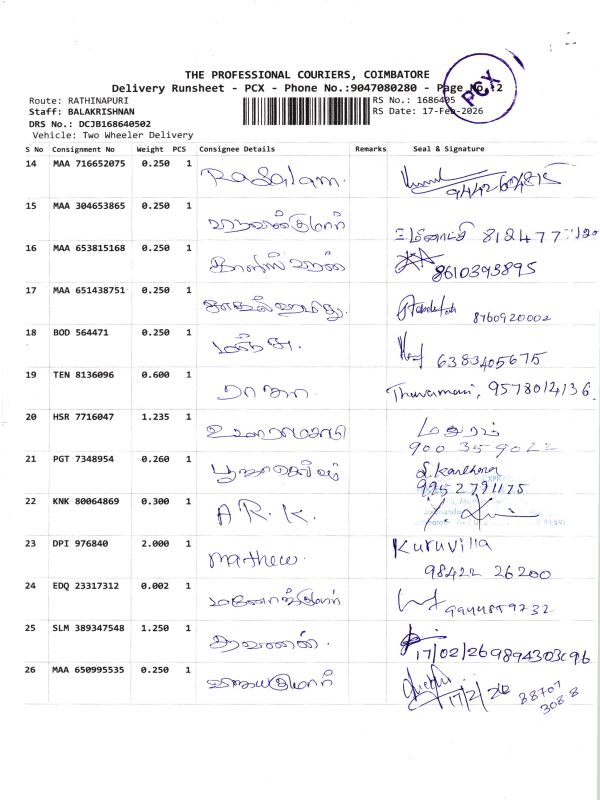 THE PROFESSIONAL COURIERS, COIMBATORE
Delivery Runsheet - PCX - Phone No.:9047080280 - Page No.:2
PCX
Route: RATHINAPURI
RS No.: 1686405
Staff: BALAKRISHNAN
RS Date: 17-Feb-2026
DRS No.: DCJB168640502
Vehicle: Two Wheeler Delivery
S No Consignment No Weight PCS Consignee Details Remarks Seal & Signature
14 MAA 716652075 0.250 1
15 MAA 304653865 0.250 1
16 MAA 653815168 0.250 1
8610393895
17 MAA 651438751 0.250 1
8760920002
18 BOD 564471 0.250 1 மஞ்சு.
6383405675
19 TEN 8136096 0.600 1 ராஜா. 9578014136
20 HSR 7716047 1.235 1 மதுரம்
900 359022
21 PGT 7348954 0.260 1
9952791175
22 KNK 80064869 0.300 1 A R. K.
23 DPI 976840 2.000 1 Mathew. Kuruvilla
98422 26200
24 EDQ 23317312 0.002 1 மனோஜ்குமார்
25 SLM 389347548 1.250 1 சரவணன்.
17/02/26 9894303096
26 MAA 650995535 0.250 1 விஜயகுமார்
17/2/26 88707
3088